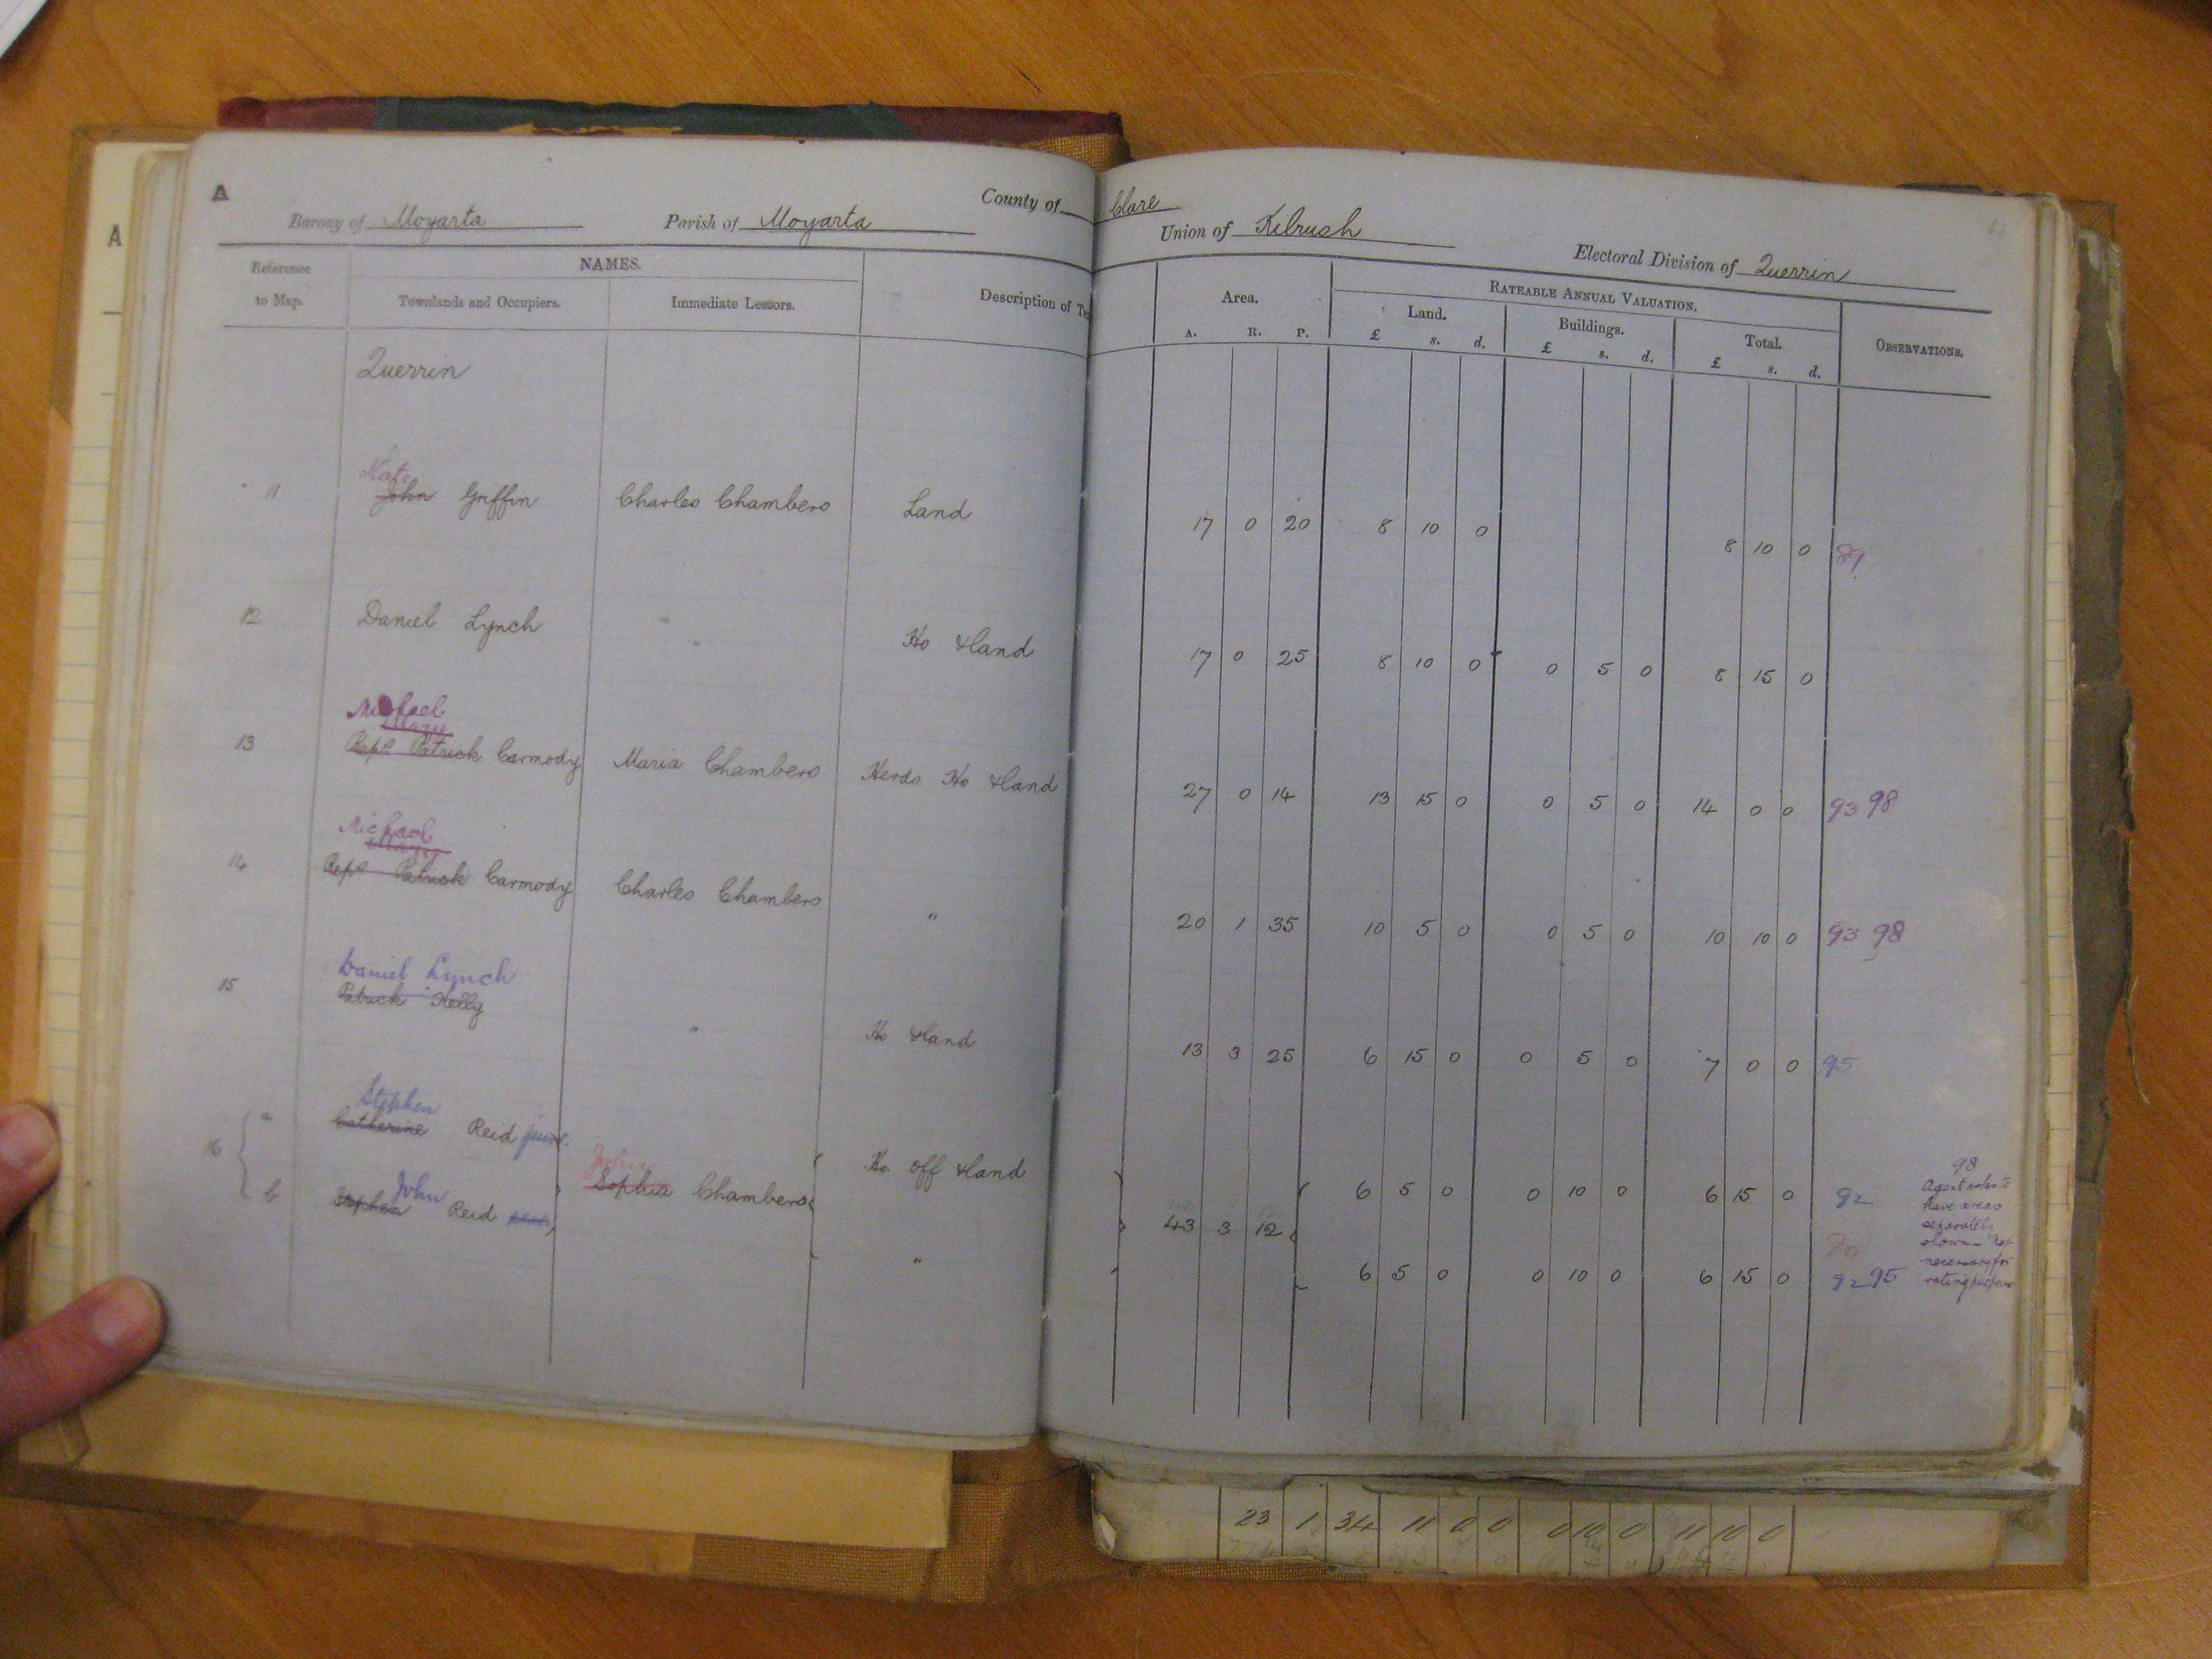 A
A
County of Clare
Barony of Moyarta Parish of Moyarta Union of Kilrush Electoral Division of Querrin
Reference to Map.
NAMES.
Townlands and Occupiers. Immediate Lessors.
Description of Te
Area.
A. R. P.
RATEABLE ANNUAL VALUATION.
Land. Buildings. Total.
£ s. d. £ s. d. £ s. d.
OBSERVATIONS.
Querrin
Kate
11 John Griffin Charles Chambers Land 17 0 20 8 10 0 8 10 0 89
12 Daniel Lynch " " Ho & land 17 0 25 8 10 0 0 5 0 8 15 0
Michael
Mary
13 Reps Patrick Carmody Maria Chambers Herds Ho & land 27 0 14 13 15 0 0 5 0 14 0 0 93 98
Michael
Mary
14 Reps Patrick Carmody Charles Chambers " 20 1 35 10 5 0 0 5 0 10 10 0 93 98
Daniel Lynch
15 Patrick Kelly " Ho & land 13 3 25 6 15 0 0 5 0 7 0 0 95
Stephen
16 a Catherine Reid junr. Ho. off & land 6 5 0 0 10 0 6 15 0 92
John
Sophia Chambers
43 3 12
John
b Stephen Reid " 6 5 0 0 10 0 6 15 0 92 95
98
Agent asks to
have areas
separately
shown - Not
necessary for
rating purposes
23 1 34 11 0 0 0 10 0 11 10 0